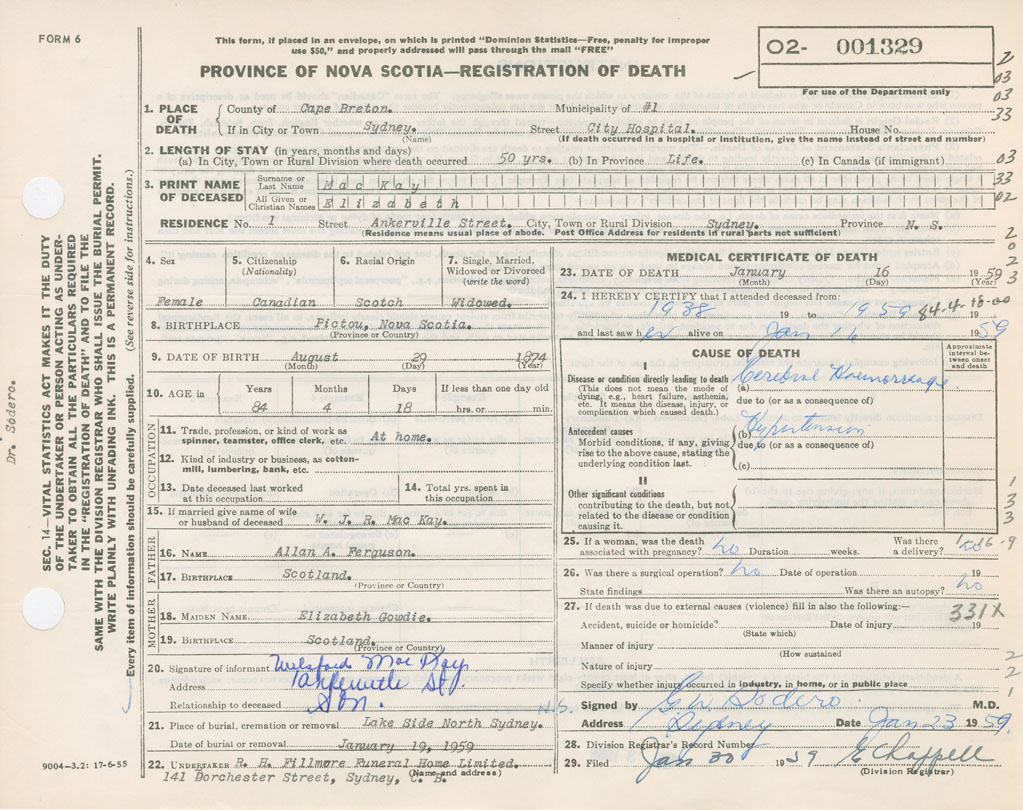 FORM 6
This form, if placed in an envelope, on which is printed “Dominion Statistics—Free, penalty for improper
use $50,” and properly addressed will pass through the mail “FREE”
PROVINCE OF NOVA SCOTIA—REGISTRATION OF DEATH
02- 001329
For use of the Department only
2
03
03
33
1. PLACE OF DEATH { County of Cape Breton. Municipality of #1
If in City or Town Sydney. Street City Hospital. House No.
(Name) (If death occurred in a hospital or institution, give the name instead of street and number)
2. LENGTH OF STAY (in years, months and days)
(a) In City, Town or Rural Division where death occurred 50 yrs. (b) In Province Life. (c) In Canada (if immigrant) 03
3. PRINT NAME OF DECEASED
Surname or Last Name Mac Kay 33
All Given or Christian Names Elizabeth 02
RESIDENCE No. 1 Street Ankerville Street. City, Town or Rural Division Sydney. Province N. S.
(Residence means usual place of abode. Post Office Address for residents in rural parts not sufficient)
2
0
2
3
4. Sex
Female
5. Citizenship
(Nationality)
Canadian
6. Racial Origin
Scotch
7. Single, Married,
Widowed or Divorced
(write the word)
Widowed.
8. BIRTHPLACE Pictou, Nova Scotia.
(Province or Country)
9. DATE OF BIRTH August 29 1874
(Month) (Day) (Year)
10. AGE in
Years Months Days If less than one day old
84 4 18 hrs. or min.
OCCUPATION
11. Trade, profession, or kind of work as
spinner, teamster, office clerk, etc. At home.
12. Kind of industry or business, as cotton-
mill, lumbering, bank, etc.
13. Date deceased last worked
at this occupation
14. Total yrs. spent in
this occupation
15. If married give name of wife
or husband of deceased W. J. R. Mac Kay.
FATHER
16. NAME Allan A. Ferguson.
17. BIRTHPLACE Scotland.
(Province or Country)
MOTHER
18. MAIDEN NAME Elizabeth Gowdie.
19. BIRTHPLACE Scotland.
(Province or Country)
20. Signature of informant Mac Kay
Address St.
Relationship to deceased Son.
N.S.
21. Place of burial, cremation or removal Lake Side North Sydney.
Date of burial or removal January 19, 1959
22. UNDERTAKER R. H. Fillmore Funeral Home Limited.
(Name and address)
141 Dorchester Street, Sydney, C. B.
9004-3.2: 17-6-55
MEDICAL CERTIFICATE OF DEATH
23. DATE OF DEATH January 16 1959
(Month) (Day) (Year)
24. I HEREBY CERTIFY that I attended deceased from:
1938 19 to 1959 19
84-4-18-00
and last saw her alive on Jan 16 1959
CAUSE OF DEATH
Approximate
interval be-
tween onset
and death
I
Disease or condition directly leading to death
(This does not mean the mode of
dying, e.g., heart failure, asthenia,
etc. It means the disease, injury, or
complication which caused death.)
(a) Cerebral Haemorrhage
due to (or as a consequence of)
Antecedent causes
Morbid conditions, if any, giving
rise to the above cause, stating the
underlying condition last.
(b) Hypertension
due to (or as a consequence of)
(c)
II
Other significant conditions
contributing to the death, but not
related to the disease or condition
causing it.
1
3
3
3
25. If a woman, was the death
associated with pregnancy? no Duration weeks. Was there
a delivery?
26. Was there a surgical operation? no Date of operation 19
State findings Was there an autopsy? no
27. If death was due to external causes (violence) fill in also the following:—
331X
Accident, suicide or homicide? Date of injury 19
(State which)
Manner of injury
(How sustained
Nature of injury
Specify whether injury occurred in industry, in home, or in public place
2
2
1
Signed by G. W. Sodero M.D.
Address Sydney Date Jan 23 1959.
28. Division Registrar's Record Number
29. Filed Jan 30 1959 E Chappell
(Division Registrar)
SEC. 14—VITAL STATISTICS ACT MAKES IT THE DUTY
OF THE UNDERTAKER OR PERSON ACTING AS UNDER-
TAKER TO OBTAIN ALL THE PARTICULARS REQUIRED
IN THE “REGISTRATION OF DEATH” AND TO FILE THE
SAME WITH THE DIVISION REGISTRAR WHO SHALL ISSUE THE BURIAL PERMIT.
WRITE PLAINLY WITH UNFADING INK. THIS IS A PERMANENT RECORD.
Every item of information should be carefully supplied. (See reverse side for instructions.)
Dr. Sodero.